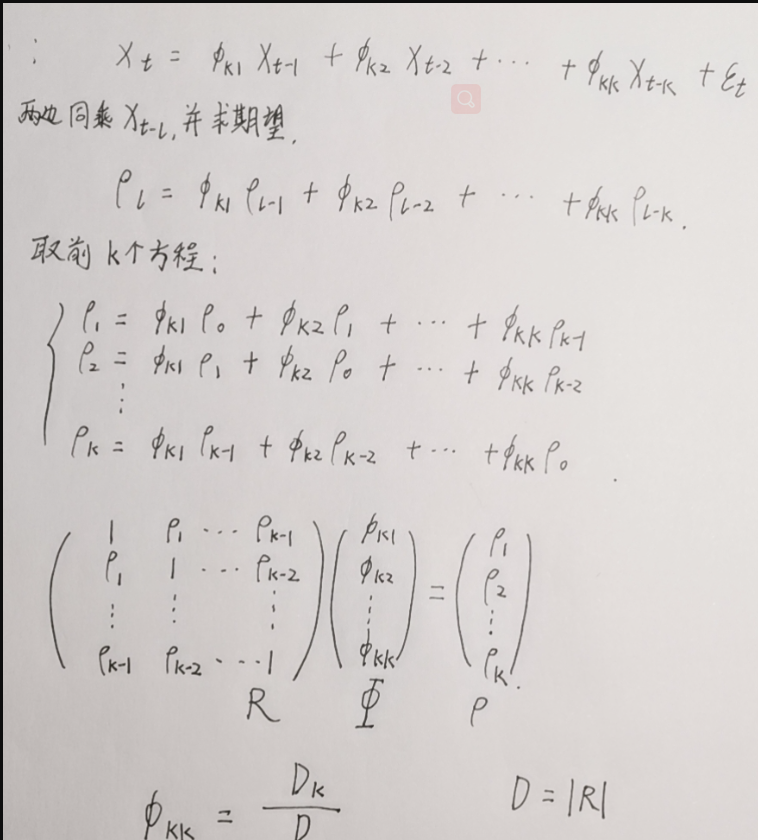 : X_t = φ_{k1} X_{t-1} + φ_{k2} X_{t-2} + ⋯ + φ_{kk} X_{t-k} + ε_t
两边同乘 X_{t-l}, 并求期望.
ρ_l = φ_{k1} ρ_{l-1} + φ_{k2} ρ_{l-2} + ⋯ + φ_{kk} ρ_{l-k}.
取前 k个方程:
ρ_1 = φ_{k1} ρ_0 + φ_{k2} ρ_1 + ⋯ + φ_{kk} ρ_{k-1}
ρ_2 = φ_{k1} ρ_1 + φ_{k2} ρ_0 + ⋯ + φ_{kk} ρ_{k-2}
⋮
ρ_k = φ_{k1} ρ_{k-1} + φ_{k2} ρ_{k-2} + ⋯ + φ_{kk} ρ_0.
( 1 ρ_1 ⋯ ρ_{k-1} ) ( φ_{k1} ) ( ρ_1 )
( ρ_1 1 ⋯ ρ_{k-2} ) ( φ_{k2} ) = ( ρ_2 )
( ⋮ ⋮ ⋮ ) ( ⋮ ) ( ⋮ )
( ρ_{k-1} ρ_{k-2} ⋯ 1 ) ( φ_{kk} ) ( ρ_k ).
R Φ ρ
φ_{kk} = D_k / D D = |R|